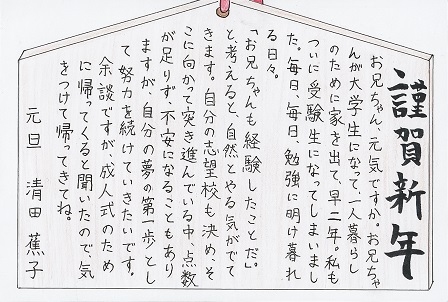 謹賀新年
お兄ちゃん、元気ですか。お兄ちゃ
んが大学生になって、一人暮らし
のために家を出て、早二年。私も
ついに受験生になってしまいまし
た。毎日、毎日、勉強に明け暮れ
る日々。
「お兄ちゃんも経験したことだ。」
と考えると、自然とやる気がでて
きます。自分の志望校も決め、そ
こに向かって突き進んでいる中、点数
が足りず、不安になることもあり
ますが、自分の夢の第一歩とし
て努力を続けていきたいです。
余談ですが、成人式のため
に帰ってくると聞いたので、気
をつけて帰ってきてね。
元旦 清田蕉子